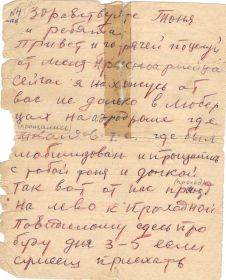 №4
Здравствуйте Таня
и ребята
Привет и горячей поцелуй
от меня красноармейца
Сейчас я нахожусь от
вас не далеко в Любер
цах на аэродроме где
где был
мобилизован и прощались
с тобой
Так вот от нас
на лево к проходной
Повтаному здесь про
буду дня 3-5 если
сумееш приехать